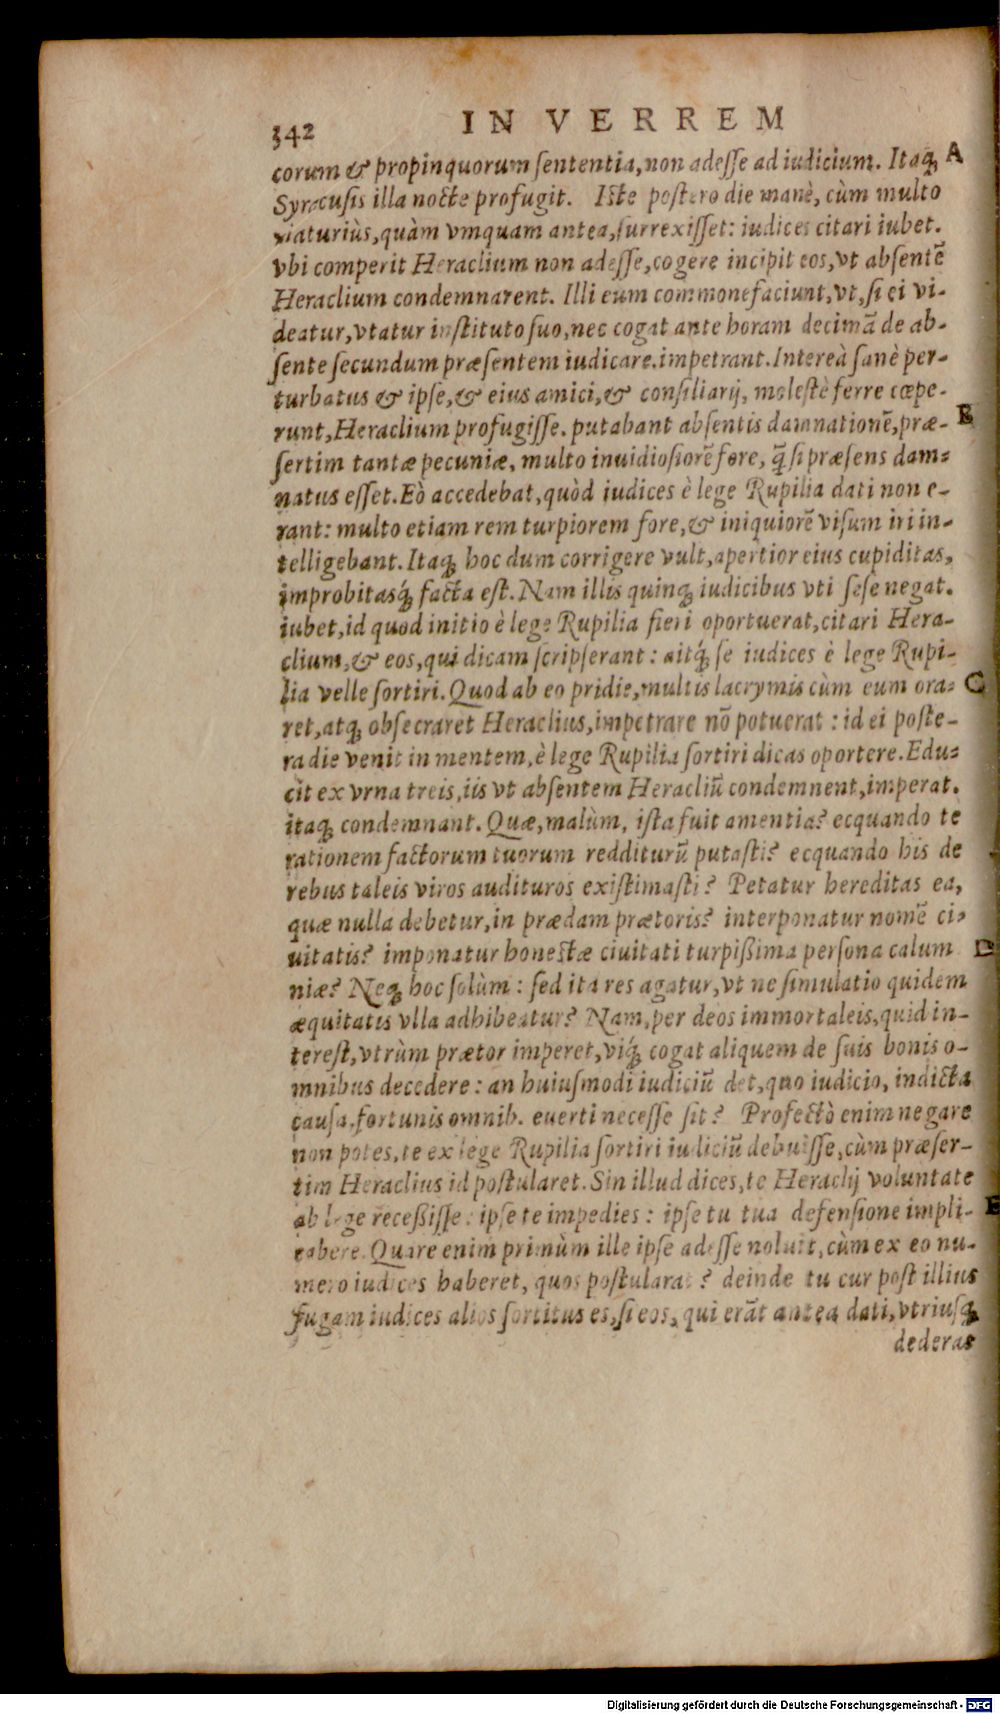 342 IN VERREM
corum & propinquorum sententia, non adesse ad iudicium. Itaq; A
Syracusis illa nocte profugit. Iste postero die manè, cùm multo
maturiùs, quàm vmquam antea, surrexisset: iudices citari iubet.
vbi comperit Heraclium non adesse, cogere incipit eos, vt absentē
Heraclium condemnarent. Illi eum commonefaciunt, vt, si ei vi-
deatur, vtatur instituto suo, nec cogat ante horam decimā de ab-
sente secundum præsentem iudicare. impetrant. Intereà sanè per-
turbatus & ipse, & eius amici, & consiliarij, molestè ferre cœpe-
runt, Heraclium profugisse. putabant absentis damnationē, præ- B
sertim tantæ pecuniæ, multo inuidiosiorē fore, q̄ si præsens dam-
natus esset. Eò accedebat, quòd iudices è lege Rupilia dati non e-
rant: multo etiam rem turpiorem fore, & iniquiorē visum iri in-
telligebant. Itaq; hoc dum corrigere vult, apertior eius cupiditas,
improbitasq́; facta est. Nam illis quinq; iudicibus vti sese negat.
iubet, id quod initio è lege Rupilia fieri oportuerat, citari Hera-
clium, & eos, qui dicam scripserant: aitq́; se iudices è lege Rupi-
lia velle sortiri. Quod ab eo pridie, multis lacrymis cùm eum ora- C
ret, atq; obsecraret Heraclius, impetrare nō potuerat: id ei poste-
ra die venit in mentem, è lege Rupilia sortiri dicas oportere. Edu-
cit ex vrna treis, iis vt absentem Heracliū condemnent, imperat.
itaq; condemnant. Quæ, malùm, ista fuit amentia? ecquando te
rationem factorum tuorum redditurū putasti? ecquando his de
rebus taleis viros audituros existimasti? Petatur hereditas ea,
quæ nulla debetur, in prædam prætoris? interponatur nomē ci-
uitatis? imponatur honestæ ciuitati turpißima persona calum D
niæ? Neq; hoc solùm: sed ita res agatur, vt ne simulatio quidem
æquitatis vlla adhibeatur? Nam, per deos immortaleis, quid in-
terest, vtrùm prætor imperet, viq́; cogat aliquem de suis bonis o-
mnibus decedere: an huiusmodi iudiciū det, quo iudicio, indicta
causa, fortunis omnib. euerti necesse sit? Profectò enim negare
non potes, te ex lege Rupilia sortiri iudiciū debuisse, cùm præser-
tim Heraclius id postularet. Sin illud dices, te Heraclij voluntate
ab lege receßisse: ipse te impedies: ipse tu tua defensione impli- E
cabere. Quare enim primùm ille ipse adesse noluit, cùm ex eo nu-
mero iudices haberet, quos postularat? deinde tu cur post illius
fugam iudices alios sortitus es, si eos, qui erāt antea dati, vtriusq;
dederas
Digitalisierung gefördert durch die Deutsche Forschungsgemeinschaft - DFG